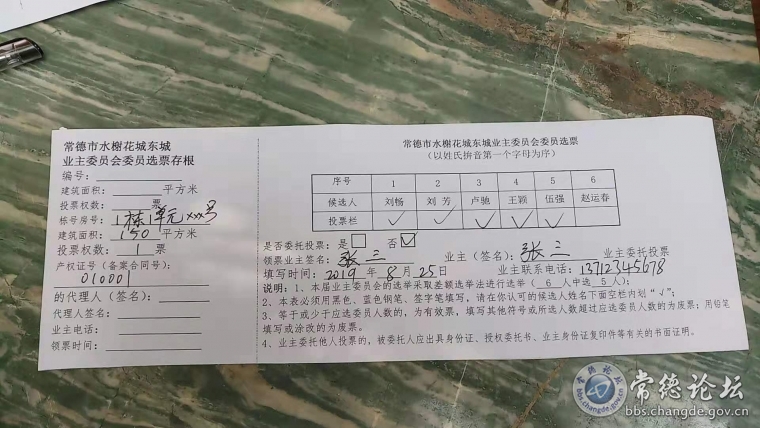 常德市水榭花城东城
业主委员会委员选票存根
编号:
建筑面积: 平方米
投票权数: 票
栋号房号: 1栋1单元xxx号
建筑面积: 150 平方米
投票权数: 1 票
产权证号(备案合同号):
010001
的代理人(签名):
代理人签名:
业主电话:
领票时间:
常德市水榭花城东城业主委员会委员选票
(以姓氏拼音第一个字母为序)
序号 1 2 3 4 5 6
候选人 刘畅 刘芳 卢驰 王颖 伍强 赵运春
投票栏 ✓ ✓ ✓ ✓ ✓
是否委托投票: 是□ 否☑
领票业主签名: 张三 业主(签名): 张三 业主委托投票
填写时间: 2019年8月25日 业主联系电话: 13712345678
说明: 1、本届业主委员会的选举采取差额选举法进行选举(6人中选5人);
2、本表必须用黑色、蓝色钢笔、签字笔填写,请在你认可的候选人姓名下面空栏内划“√”;
3、等于或少于应选委员人数的,为有效票,填写其他符号或所选人数超过应选委员人数的为废票;用铅笔
填写或涂改的为废票。
4、业主委托他人投票的,被委托人应出具身份证、授权委托书、业主身份证复印件等有关的书面证明。
常德论坛
bbs.changde.gov.cn